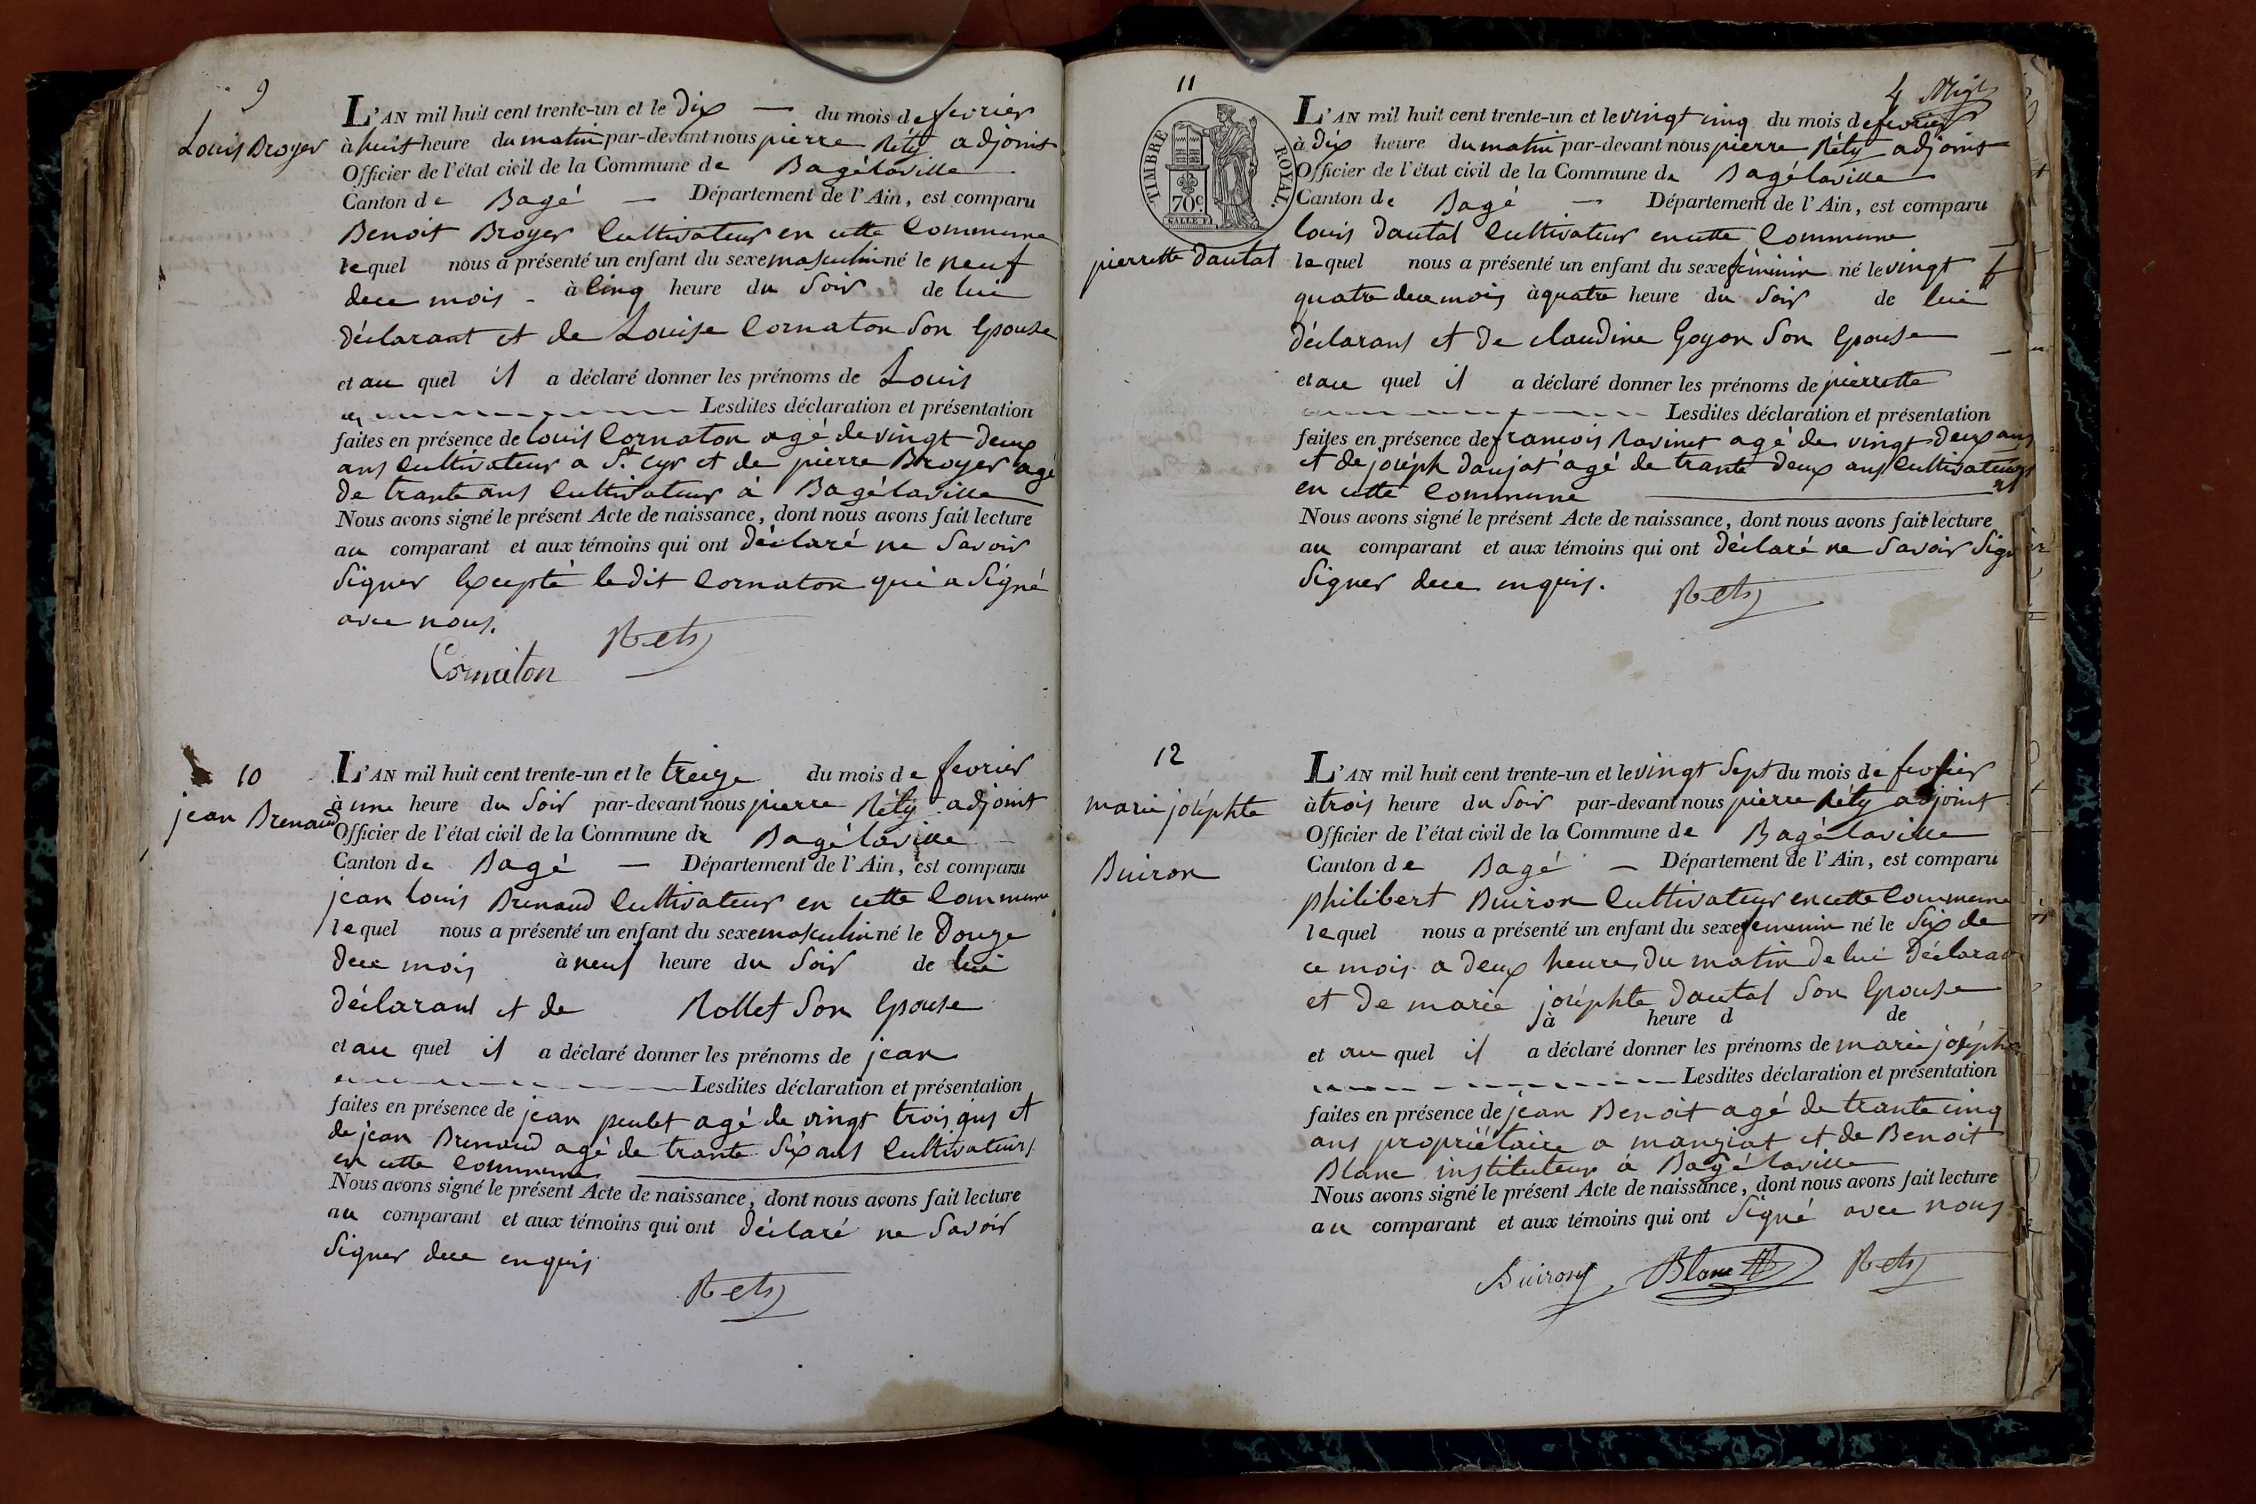 9
Louis Broyer
L'AN mil huit cent trente-un et le dix — du mois de fevrier
à huit heure du matin par-devant nous pierre Réty adjoint
Officier de l'état civil de la Commune de Bagélaville
Canton de Bagé — Département de l'Ain, est comparu
Benoit Broyer Cultivateur en cette Commune
lequel nous a présenté un enfant du sexe masculin né le neuf
dece mois - à Cinq heure du Soir de lui
déclarant et de Louise Cornaton Son Epouse
et au quel il a déclaré donner les prénoms de Louis
Lesdites déclaration et présentation
faites en présence de Louis Cornaton agé de vingt deux
ans Cultivateur a St. Cyr et de pierre Broyer agé
de trante ans Cultivateur à Bagélaville
Nous avons signé le présent Acte de naissance, dont nous avons fait lecture
au comparant et aux témoins qui ont déclaré ne Savoir
Signer Excepté ledit Cornaton qui a Signé
avec nous.
Cornaton Réty
10
jean Brenaud
L'AN mil huit cent trente-un et le treize du mois de fevrier
à une heure du Soir par-devant nous pierre Réty adjoint
Officier de l'état civil de la Commune de Bagélaville
Canton de Bagé — Département de l'Ain, est comparu
jean Louis Brenaud Cultivateur en cette Commune
lequel nous a présenté un enfant du sexe masculin né le Douze
dece mois à neuf heure du Soir de lui
déclarant et de Rollet Son Epouse
et au quel il a déclaré donner les prénoms de jean
Lesdites déclaration et présentation
faites en présence de jean peulet agé de vingt trois ans et
de jean Brenaud agé de trante Six ans Cultivateurs
en cette Commune
Nous avons signé le présent Acte de naissance, dont nous avons fait lecture
au comparant et aux témoins qui ont déclaré ne Savoir
Signer dece enquis
Réty
11
4
TIMBRE ROYAL.
70c.
pierrette dautal
L'AN mil huit cent trente-un et le vingt cinq du mois de fevrier
à dix heure du matin par-devant nous pierre Réty adjoint
Officier de l'état civil de la Commune de Bagélaville
Canton de Bagé — Département de l'Ain, est comparu
Louis dautal Cultivateur en cette Commune
lequel nous a présenté un enfant du sexe féminin né le vingt
quatre dece mois à quatre heure du Soir de lui
déclarant et de claudine Goyon Son Epouse
et au quel il a déclaré donner les prénoms de pierrette
Lesdites déclaration et présentation
faites en présence de francois Ravinet agé de vingt deux ans
et de joséph daujat agé de trante deux ans Cultivateurs
en cette Commune
Nous avons signé le présent Acte de naissance, dont nous avons fait lecture
au comparant et aux témoins qui ont déclaré ne Savoir Signer
Signer dece enquis.
Réty
12
marie joséphte
Buiron
L'AN mil huit cent trente-un et le vingt Sept du mois de fevrier
à trois heure du Soir par-devant nous pierre Réty adjoint
Officier de l'état civil de la Commune de Bagélaville
Canton de Bagé — Département de l'Ain, est comparu
philibert Buiron Cultivateur en cette Commune
lequel nous a présenté un enfant du sexe feminin né le Six de
ce mois a deux heures du matin de lui déclarant
et de marie joséphte dautal Son Epouse
à heure d de
et au quel il a déclaré donner les prénoms de marie joséphte
Lesdites déclaration et présentation
faites en présence de jean Benoit agé de trante cinq
ans propriétaire a manziat et de Benoit
Blanc instituteur à Bagélaville
Nous avons signé le présent Acte de naissance, dont nous avons fait lecture
au comparant et aux témoins qui ont Signé avec nous
Buiron Blanc Réty